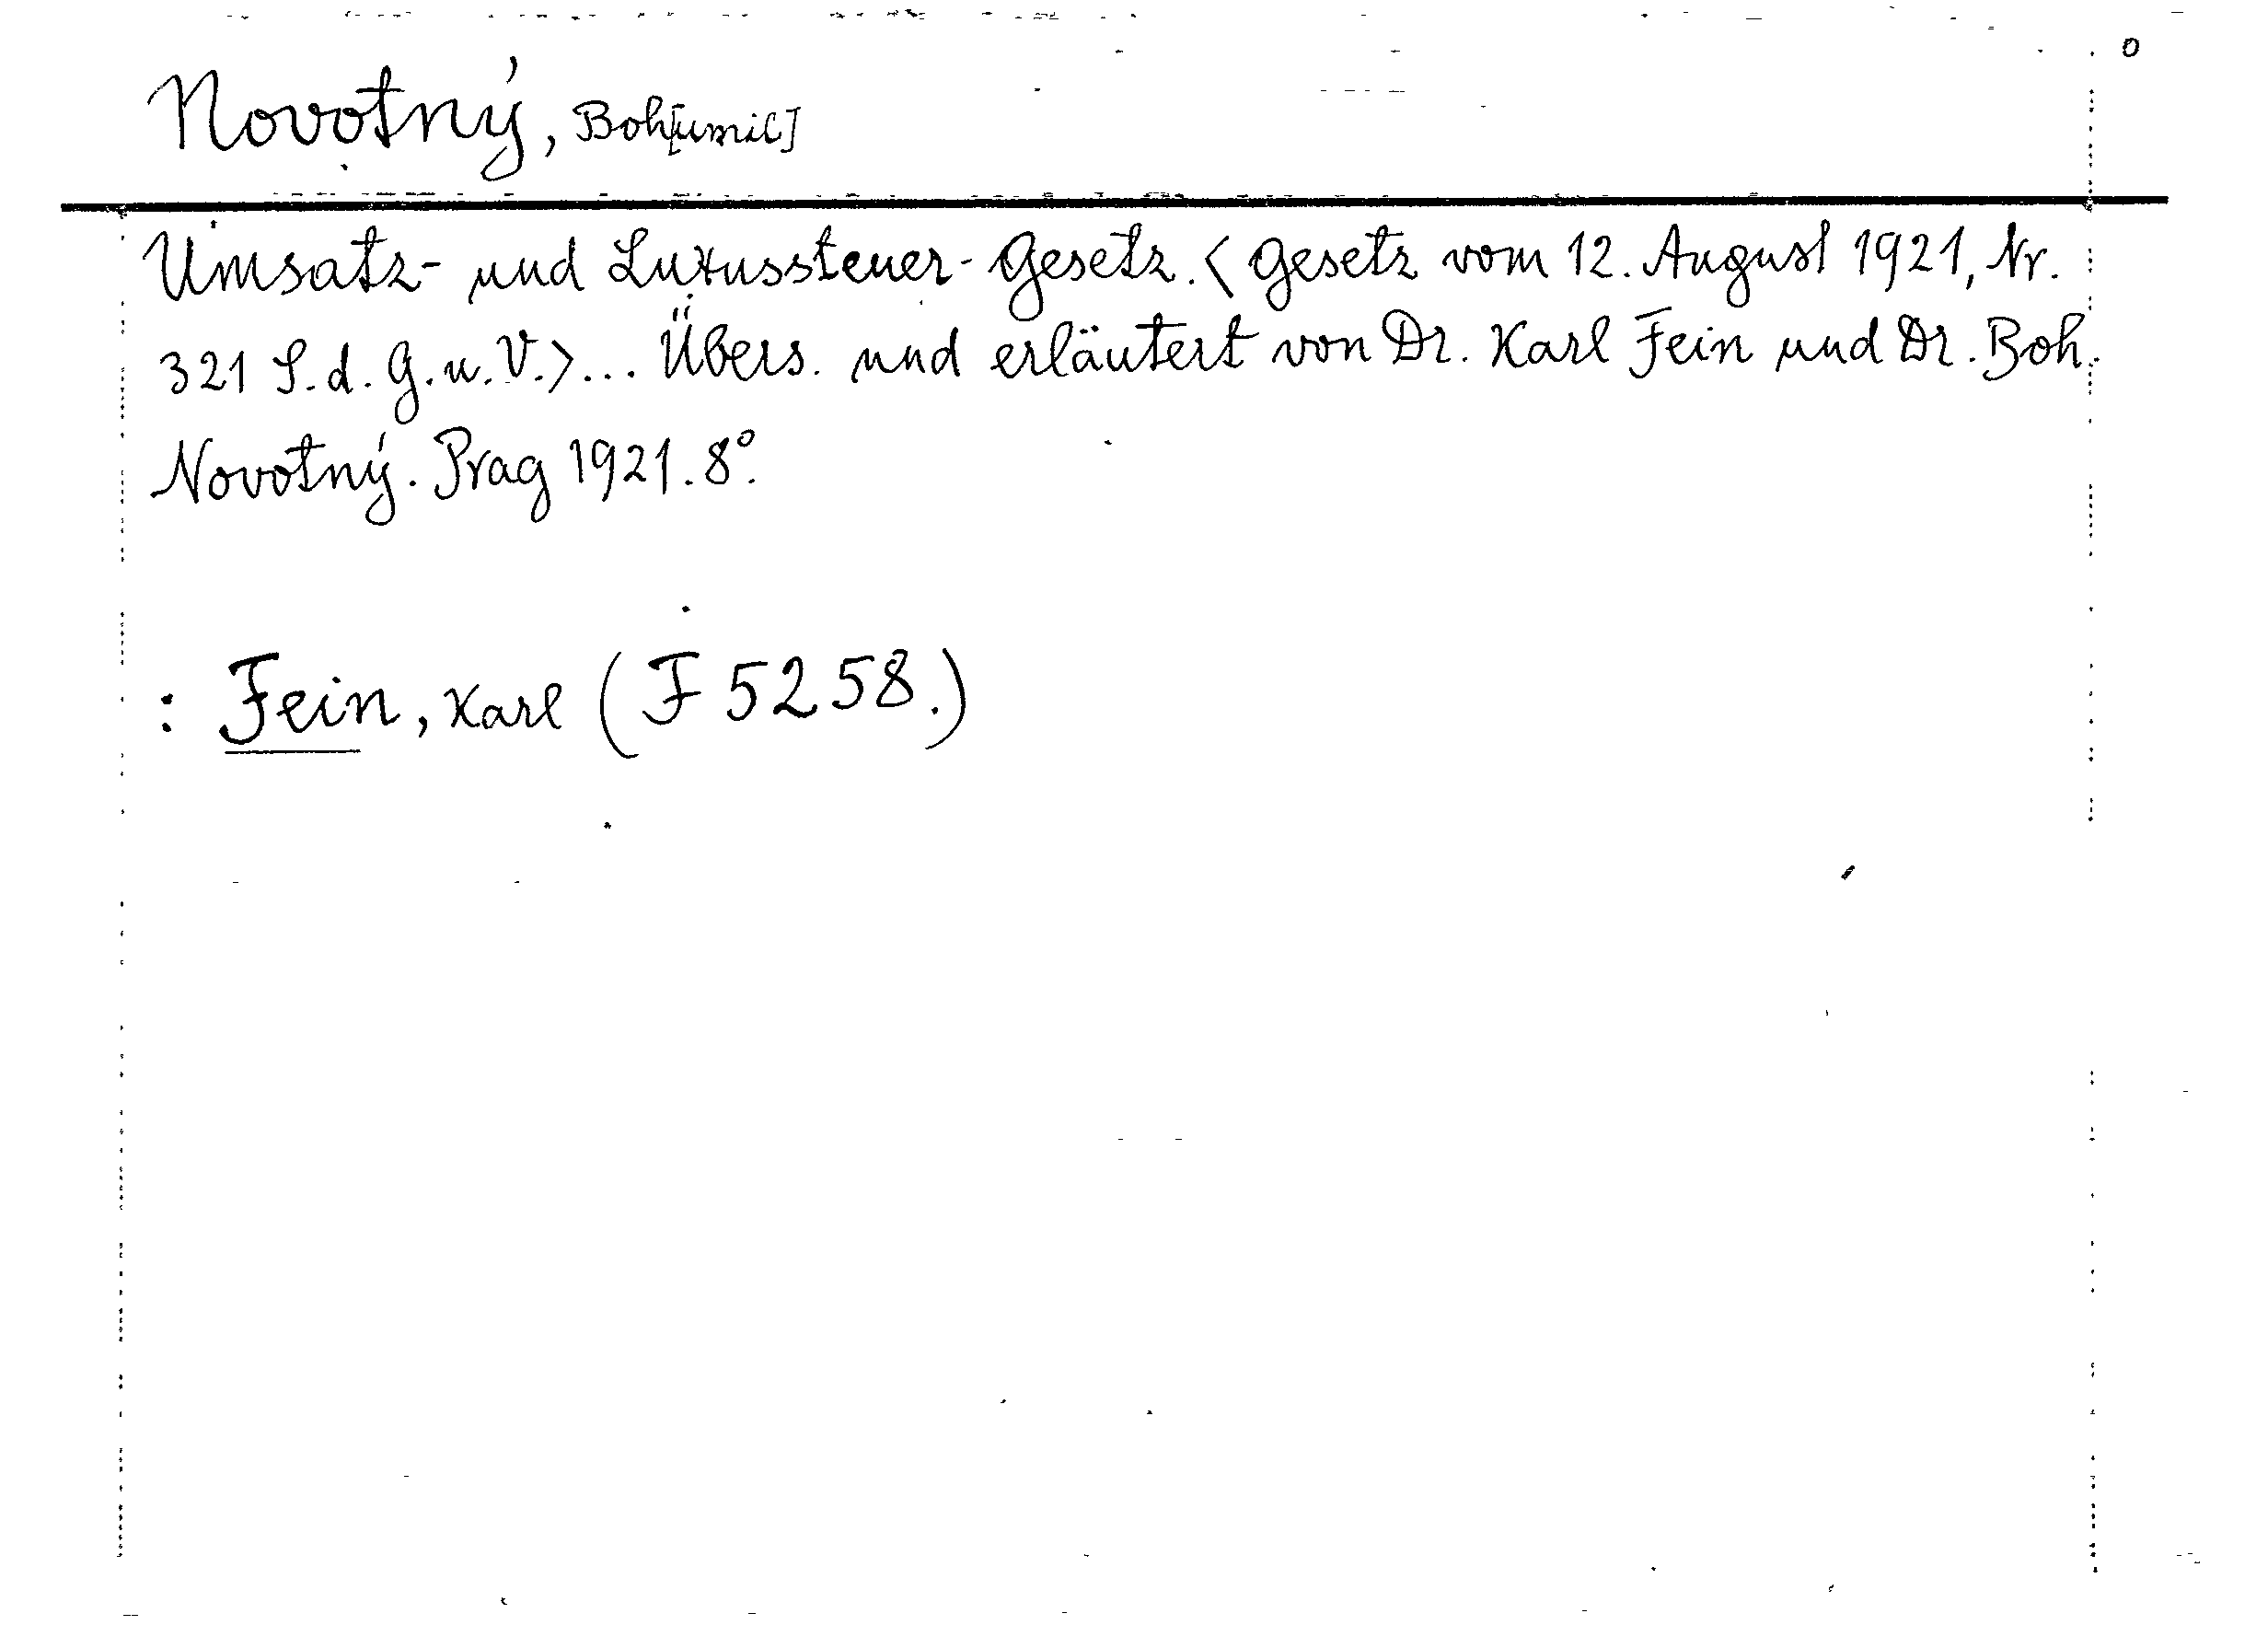 Novotný, Boh[umil]
Umsatz- und Luxussteuer-Gesetz. < Gesetz vom 12. August 1921, Nr.
321 S. d. G. u. V. > ... Übers. und erläutert von Dr. Karl Fein und Dr. Boh.
Novotný. Prag 1921. 8°.
: Fein, Karl (F 5258.)